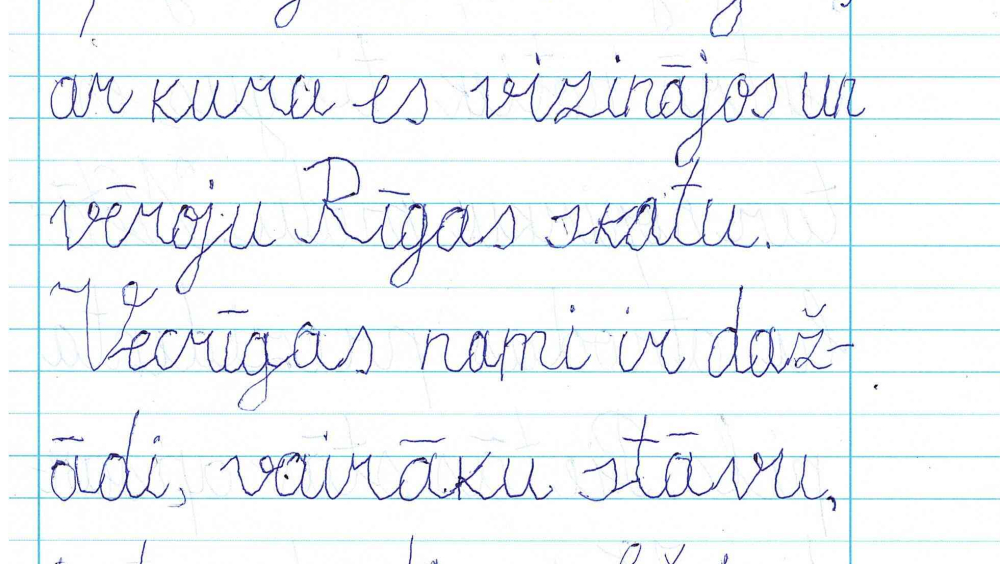 ar kura es vizinājos un
vēroju Rīgas skatu.
Vecrīgas nami ir daž-
ādi, vairāku stāvu,